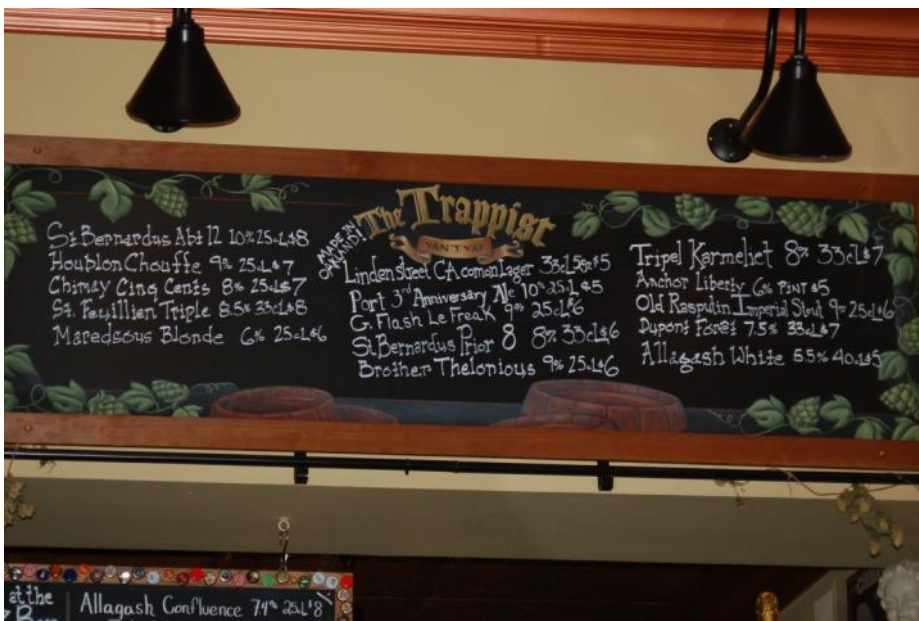 The Trappist
VAN TVAT
St Bernardus Abt 12 10% 25cL $8
Houblon Chouffe 9% 25cL $7
Chimay Cinq Cents 8% 25cL $7
St. Feuillien Triple 8.5% 33cL $8
Maredsous Blonde 6% 25cL $6
MADE IN
OAKLAND!
Linden street CA comon Lager 33cL 5% $5
Port 3rd Anniversary Ale 10% 25cL $5
G. Flash Le Freak 9% 25cL $6
St Bernardus Prior 8 8% 33cL $6
Brother Thelonious 9% 25cL $6
Tripel Karmeliet 8% 33cL $7
Anchor Liberty 6% PINT $5
Old Rasputin Imperial Stout 9% 25cL $6
Dupont Foret 7.5% 33cL $7
Allagash White 5.5% 40cL $5
at the
Allagash Confluence 7.4% 25cL $8